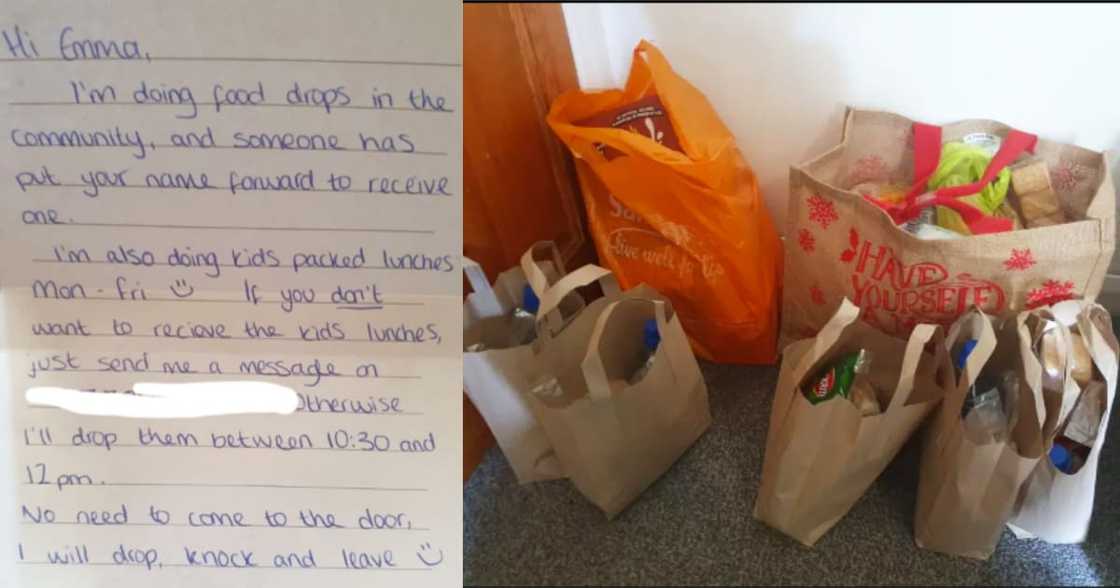 Hi Emma,
I'm doing food drops in the
community, and someone has
put your name forward to receive
one.
I'm also doing kids packed lunches
Mon - Fri ☺ If you don't
want to reciave the kids lunches,
just send me a message on
Otherwise
I'll drop them between 10:30 and
12pm.
No need to come to the door,
I will drop, knock and leave ☺
live well for
HAVE
YOURSELF